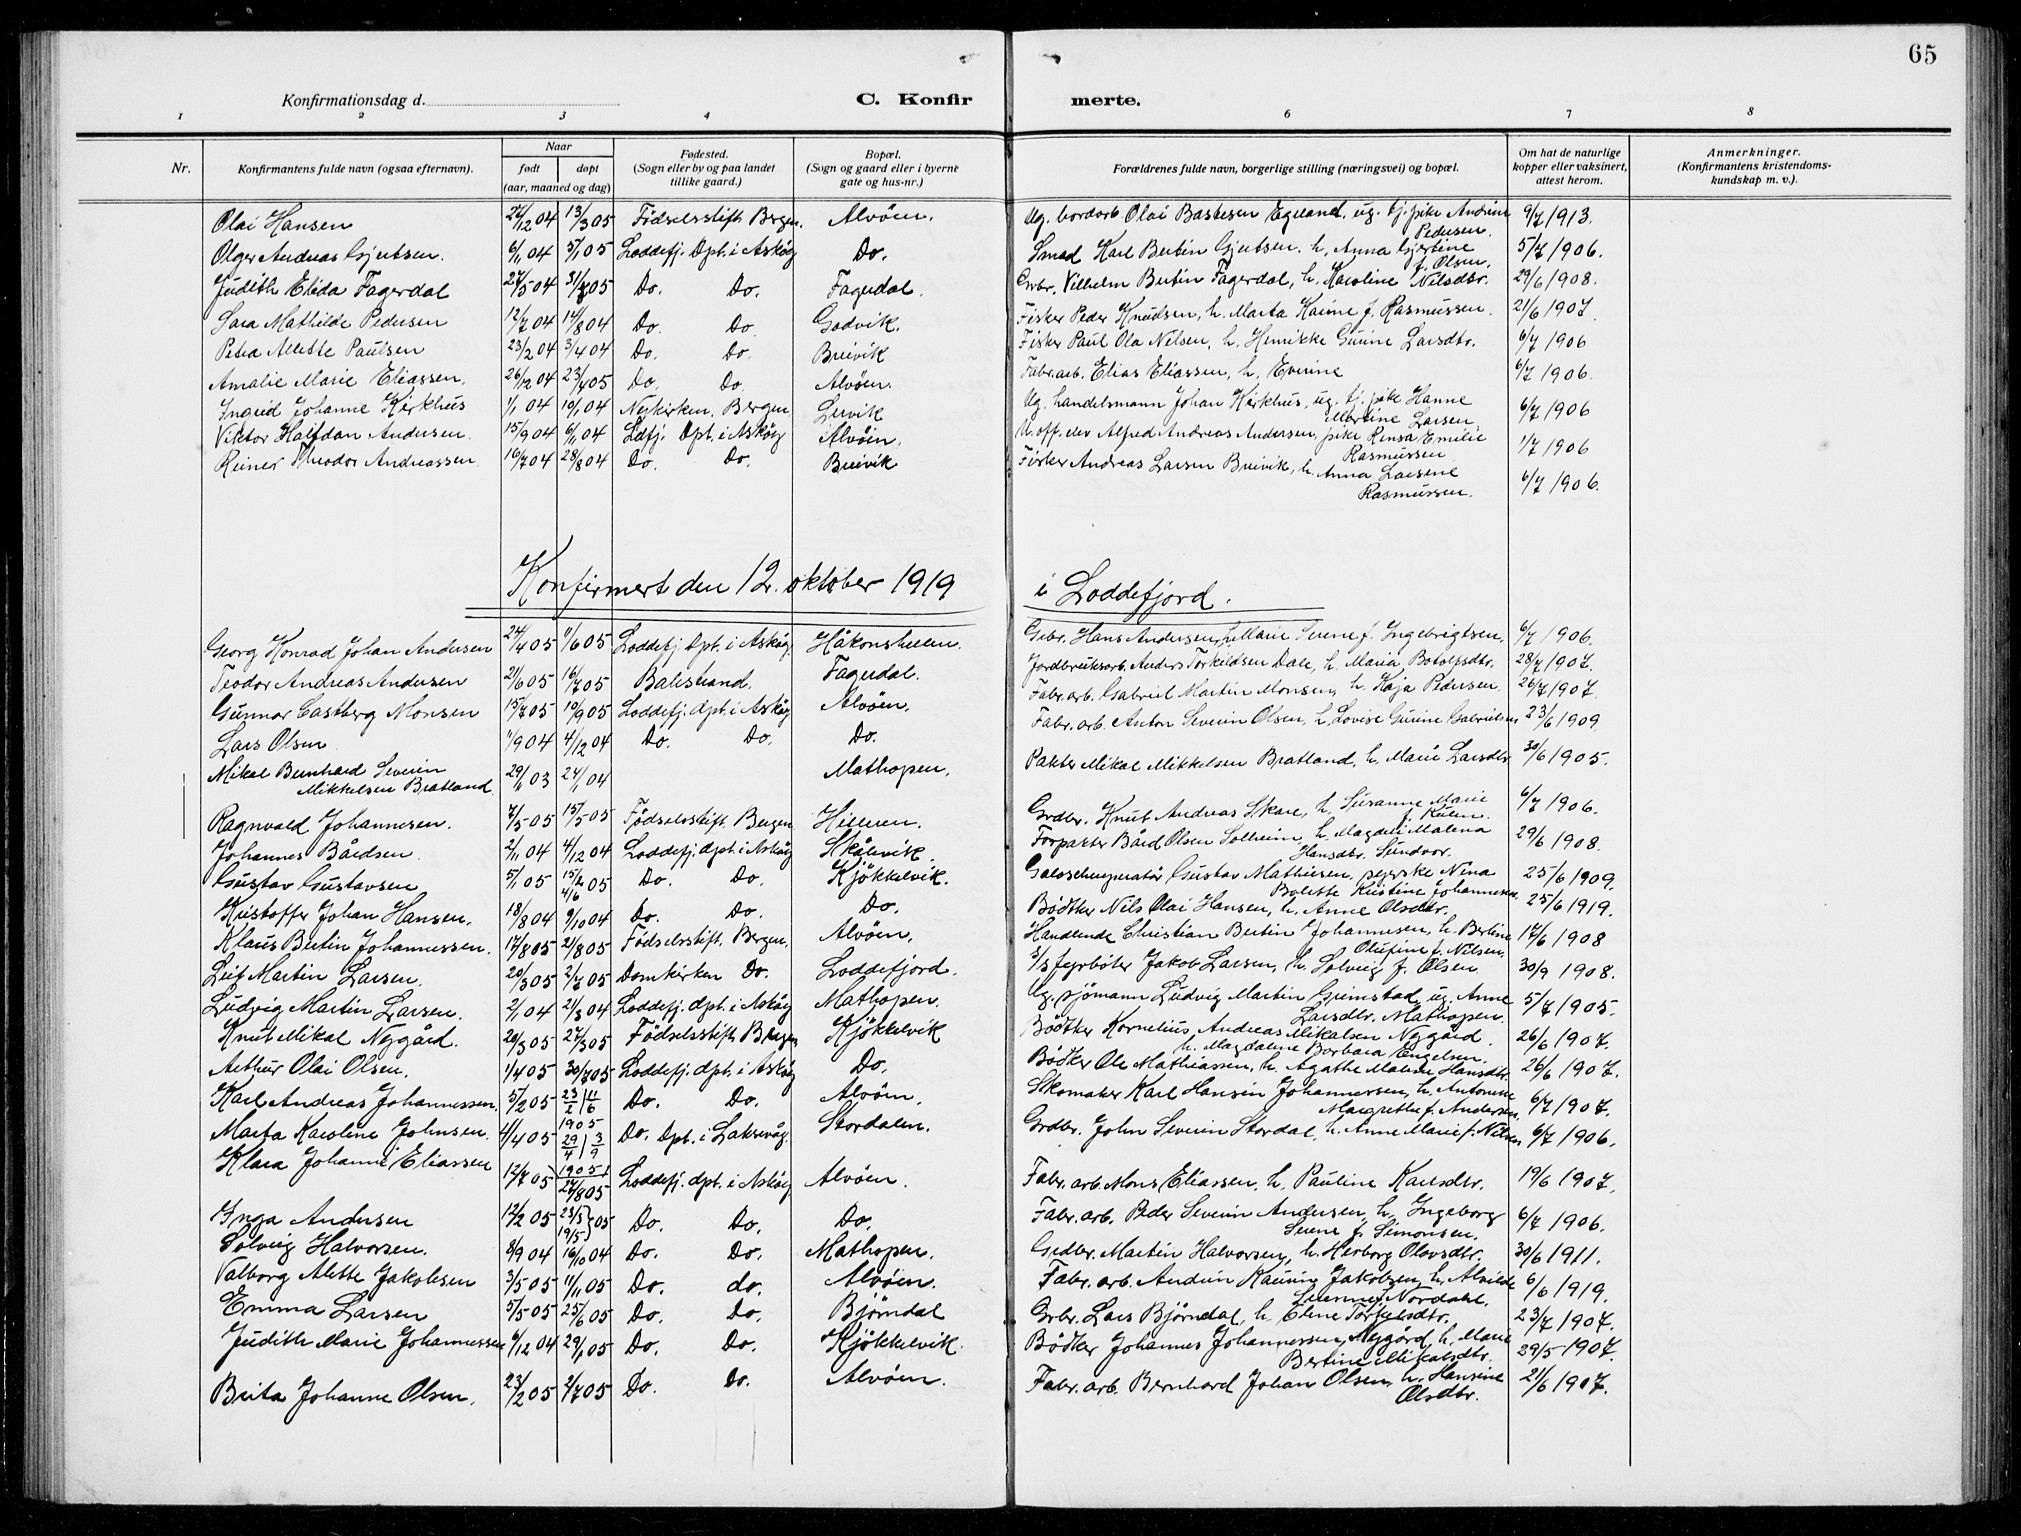 65
Konfirmationsdag d.
C. Konfir merte.
1 2 3 4 6 7 8
Nr.
Konfirmantens fulde navn (ogsaa efternavn).
Naar
født døpt
(aar, maaned og dag)
Fødested.
(Sogn eller by og paa landet
tillike gaard.)
Bopæl.
(Sogn og gaard eller i byerne
gate og hus-nr.)
Forældrenes fulde navn, borgerlige stilling (næringsvei) og bopæl.
Om hat de naturlige
kopper eller vaksinert,
attest herom.
Anmerkninger.
(Konfirmantens kristendoms-
kundskap m. v.).
Olai Hansen 27/12 04 13/3 05 Födselsstift. Bergen. Alvöen. Ug. bordarb. Olai Bastesen Egeland, ug. tj. pike Andrine 9/7 1913.
Pedersen.
Olger Andreas Gjertsen. 6/11 04 5/1 05 Loddefj. Dpt. i Askög Do. Smed Karl Bertin Gjertsen. h. Anna Gjertine 5/7 1906.
f. Olsen.
Judith Elida Fagerdal 27/5 04 05 Do. Do. Fagerdal. Grbr. Vilhelm Bertin Fagerdal, h. Karoline Nilsdtr. 29/6 1908.
Sara Mathilde Pedersen 12/7 04 14/8 04 Do. Do. Godvik. Fisker Peder Knudsen, h. Marta Karine f. Rasmussen. 21/6 1907.
Petra Alette Paulsen 23/2 04 3/4 04 Do. Do. Breivik Fisker Paul Ola Nilsen, h. Henrikke Gurine Larsdtr. 6/7 1906
Amalie Marie Eliassen. 26/12 04 23/4 05 Do. Do. Alvöen. Fabr. arb. Elias Eliassen, h. Everine 6/7 1906.
Ingrid Johanne Kirkhus 1/1 04 10/1 04 Nykirken, Bergen Lervik Ug. handelsmann Johan Kirkhus, ug. tj. pike Hanne 6/7 1906
Martine Larsen.
Viktor Halfdan Andersen. 15/9 04 6/11 04 Ldfj. Dpt. i Askög Alvöen. U. off. elev Alfred Andreas Andersen, pike Rensa Emilie 1/7 1906
Rasmussen
Reiner Theodor Andreassen. 16/7 04 28/8 04 Do. Do. Breivik Fisker Andreas Larsen Breivik, h. Anna Larsine 6/7 1906.
Rasmussen.
Konfirmert den 12. oktober 1919 i Loddefjord.
Georg Konrad Johan Andersen 24/4 05 11/6 05 Loddefj. Dpt. i Askög. Håkonshellen. Grbr. Hans Andersen, h. Marie Serene f. Ingebrigtsen. 6/7 1906.
Teodor Andreas Andersen 21/6 05 16/7 05 Balestrand. Fagerdal. Jordbruksarb. Anders Torkildsen Dale, h. Maria Botolfsdtr. 28/7 1907.
Gunnar Castberg Monsen 15/7 05 10/9 05 Loddefj. dpt. i Askög Alvöen. Fabr. arb. Gabriel Martin Monsen, h. Kaja Pedersen. 26/7 1907.
Lars Olsen 11/9 04 4/12 04 Do. Do. Do. Fabr. arb. Anton Severin Olsen, h. Lovise Gurine Gabrielsen 23/6 1909.
Mikal Bernhard Severin 29/11 03 24/1 04 Mathopen. Pakter Mikal Mikkelsen Bratland, h. Marie Larsdtr. 30/6 1905.
Mikkelsen Bratland
Ragnvald Johannesen. 7/5 05 15/5 05 Födselsstift. Bergen Hilleren. Grdbr. Knut Andreas Skare, h. Susanne Marie 6/7 1906.
Johannes Bårdsen. 2/11 04 4/12 04 Loddefj. dpt. i Askög Skålevik. Forpakter Bård Olsen Solheim, h. Magdeli Malena 29/6 1908.
Hansdtr. Sundvor.
Gustav Gustavsen 5/1 05 15/2 4/6 05 Do. Do. Kjökkelvik. Gustav Mathiesen, Nina 25/6 1909.
Bolette Kristine Johannesen
Kristoffer Johan Hansen. 18/8 04 9/10 04 Do. Do. Do. Bödtker Nils Olai Hansen, h. Anne Olsdtr. 25/6 1919.
Klaus Bertin Johannessen. 17/8 05 21/8 05 Födselsstift. Bergen. Alvöen. Handlende Christian Bertin Johannesen, h. Bertine 17/6 1908
Olufine f. Nilsen.
Leif Martin Larsen. 20/3 05 2/7 05 Domkirken Do. Loddefjord. fyrböter Jakob Larsen, h. Solveig f. Olsen 30/9 1908.
Ludvig Martin Larsen. 2/1 04 21/3 04 Loddefj. dpt. i Askög Mathopen. Ug. sjömann Ludvig Martin Grimstad, ug. Anne 5/7 1905.
Larsdtr. Mathopen.
Knut Mikal Nygård. 20/3 05 27/3 05 Födselsstift. Bergen Kjökkelvik Bödtker Kornelius Andreas Mikalsen Nygård. 26/6 1907.
h. Magdalene Barbara Engelsen.
Arthur Olai Olsen. 1/4 05 30/7 05 Loddefj. dpt. i Askög Do. Bödker Ole Mathiassen, h. Agathe Malene Hansdtr. 26/6 1907.
Karl Andreas Johannessen. 5/2 05 23/2 | 4/6 1905 Do. Do. Alvöen. Skomaker Karl Hansen Johannessen, h. Antonine 6/7 1907.
Margrethe f. Andersen
Marta Karoline Johnsen. 4/4 05 29/4 | 3/9 1905 Do. Dpt. i Laksevåg. Stordalen. Grdbr. John Severin Stordal, h. Anne Marie f. Nilsen 6/7 1906.
Klara Johanne Eliassen 12/7 05 27/8 05 Loddefj. dpt. i Askög Alvöen. Fabr. arb. Mons Eliassen, h. Pauline Karlsdtr. 19/6 1907.
Inga Andersen 12/2 05 23/3 19/5 } 05 Do. Do. Do. Fabr. arb. Peder Severin Andersen, h. Ingeborg 6/7 1906.
Serene f. Simonsen.
Solveig Halvorsen. 8/9 04 16/10 04 Do. Do. Mathopen. Grdbr. Martin Halvorsen, h. Herborg Olavsdtr. 30/6 1911.
Valborg Alette Jakobsen 3/5 05 11/11 05 Do. do. Alvöen. Fabr. arb. Andrein Jakobsen, h. Alvilde 6/6 1919.
Nordahl.
Emma Larsen 5/5 05 25/6 05 Do. Do. Bjørndal Grbr. Lars Bjørndal, h. Eline Torjulsdtr. 23/7 1907.
Judith Marie Johannessen 6/12 04 29/1 05 Do. Do. Kjökkelvik. Bödker Johannes Johannessen Nygård, h. Marie 29/5 1907.
Bertine Mikalsdtr.
Brita Johanne Olsen. 23/2 05 2/7 05 Do. Do. Alvöen. Fabr. arb. Bernhard Johan Olsen, h. Hansine 21/6 1907.
Olsdtr.